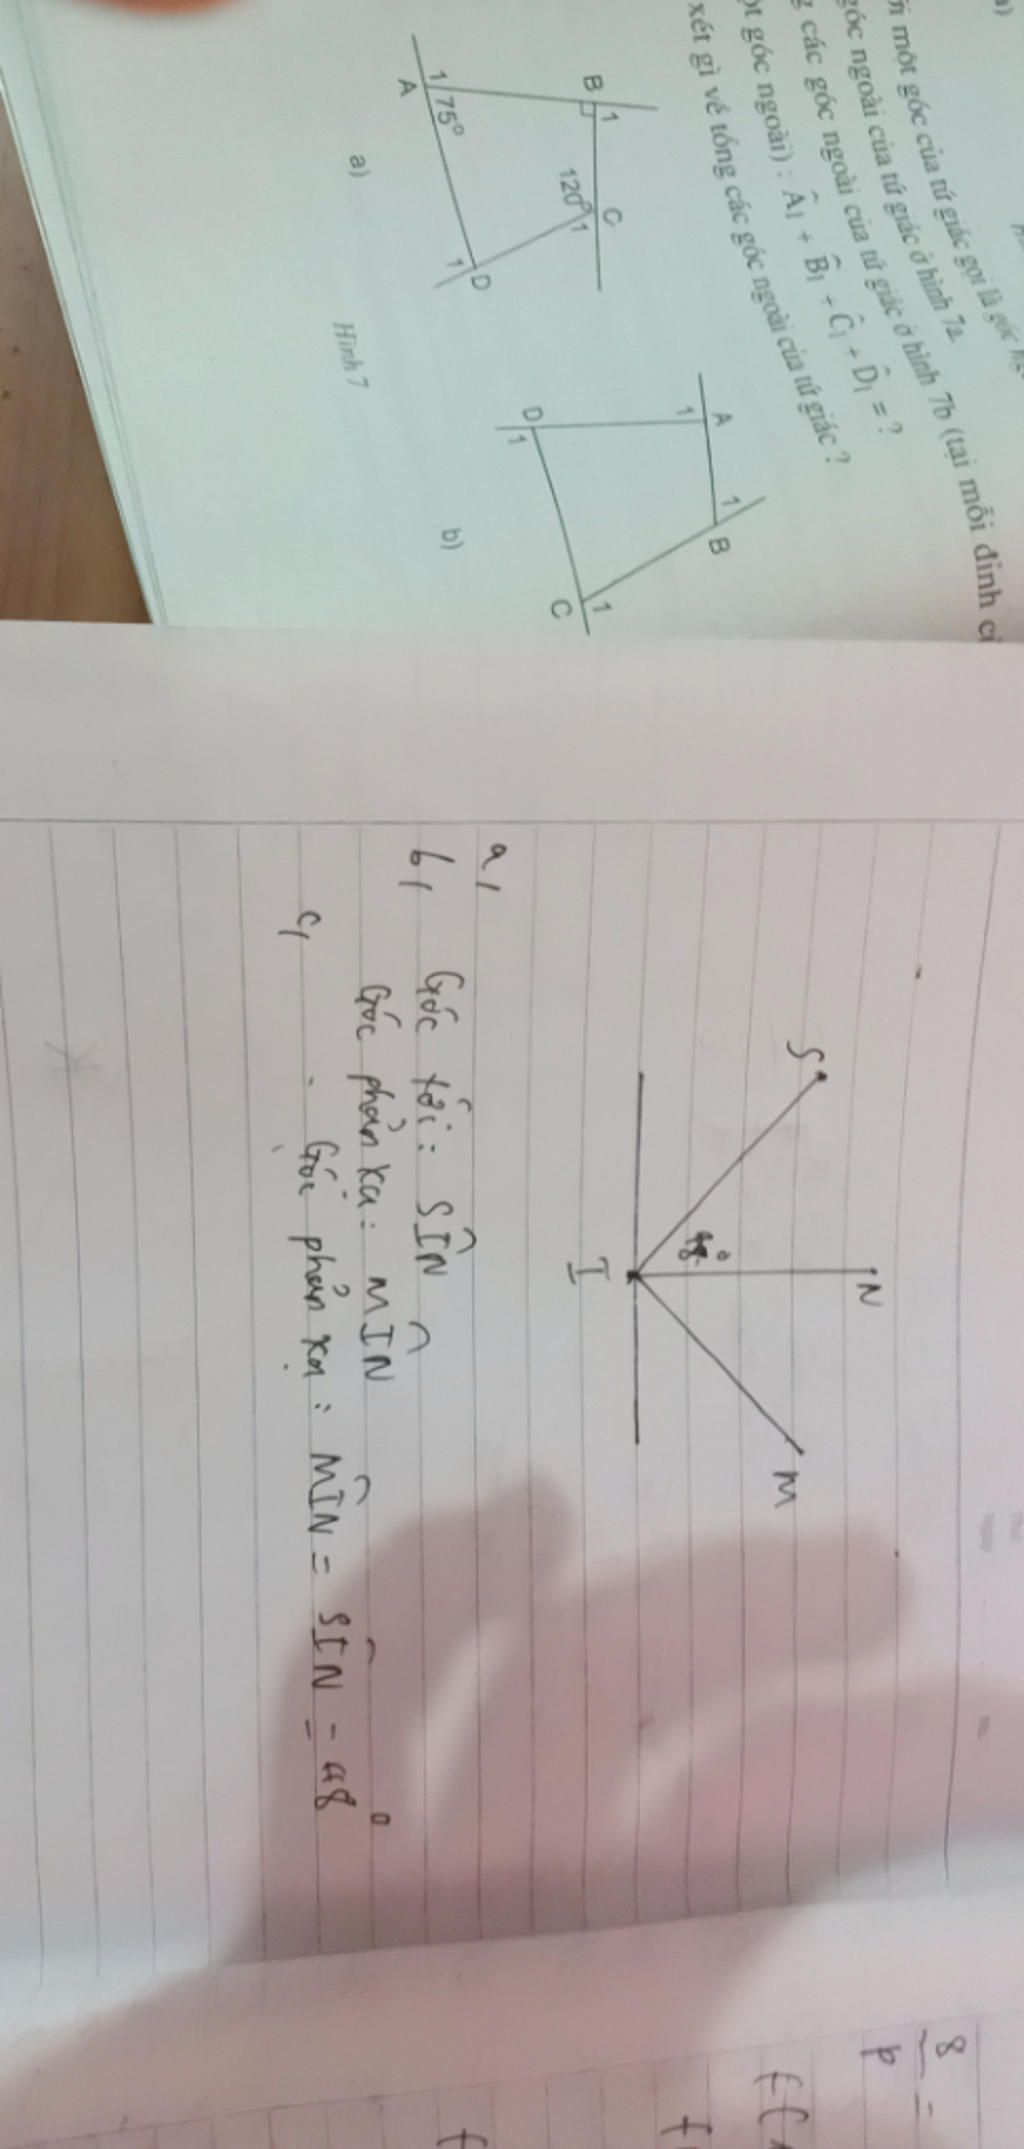 một góc của tứ giác gọi là góc
góc ngoài của tứ giác ở hình 7a
các góc ngoài của tứ giác ở hình 7b (tại mỗi đỉnh
góc ngoài) : Â1 + B̂1 + Ĉ1 + D̂1 = ?
xét gì về tổng các góc ngoài của tứ giác ?
B 1 C
120° 1
75°
1 A
1 D
a)
A 1 B
1
D 1
1 C
b)
Hình 7
S N M
48°
I
a,
b, Góc tới: SÎN
Góc phản xạ: MÎN
c, Góc phản xạ: MÎN = SÎN = 48°
8 =
p